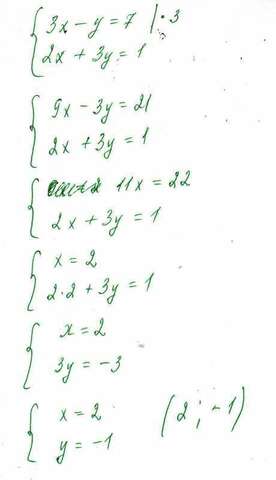 3x - y = 7 | · 3
2x + 3y = 1
9x - 3y = 21
2x + 3y = 1
11x = 22
2x + 3y = 1
x = 2
2·2 + 3y = 1
x = 2
3y = -3
x = 2
y = -1
(2 ; -1)